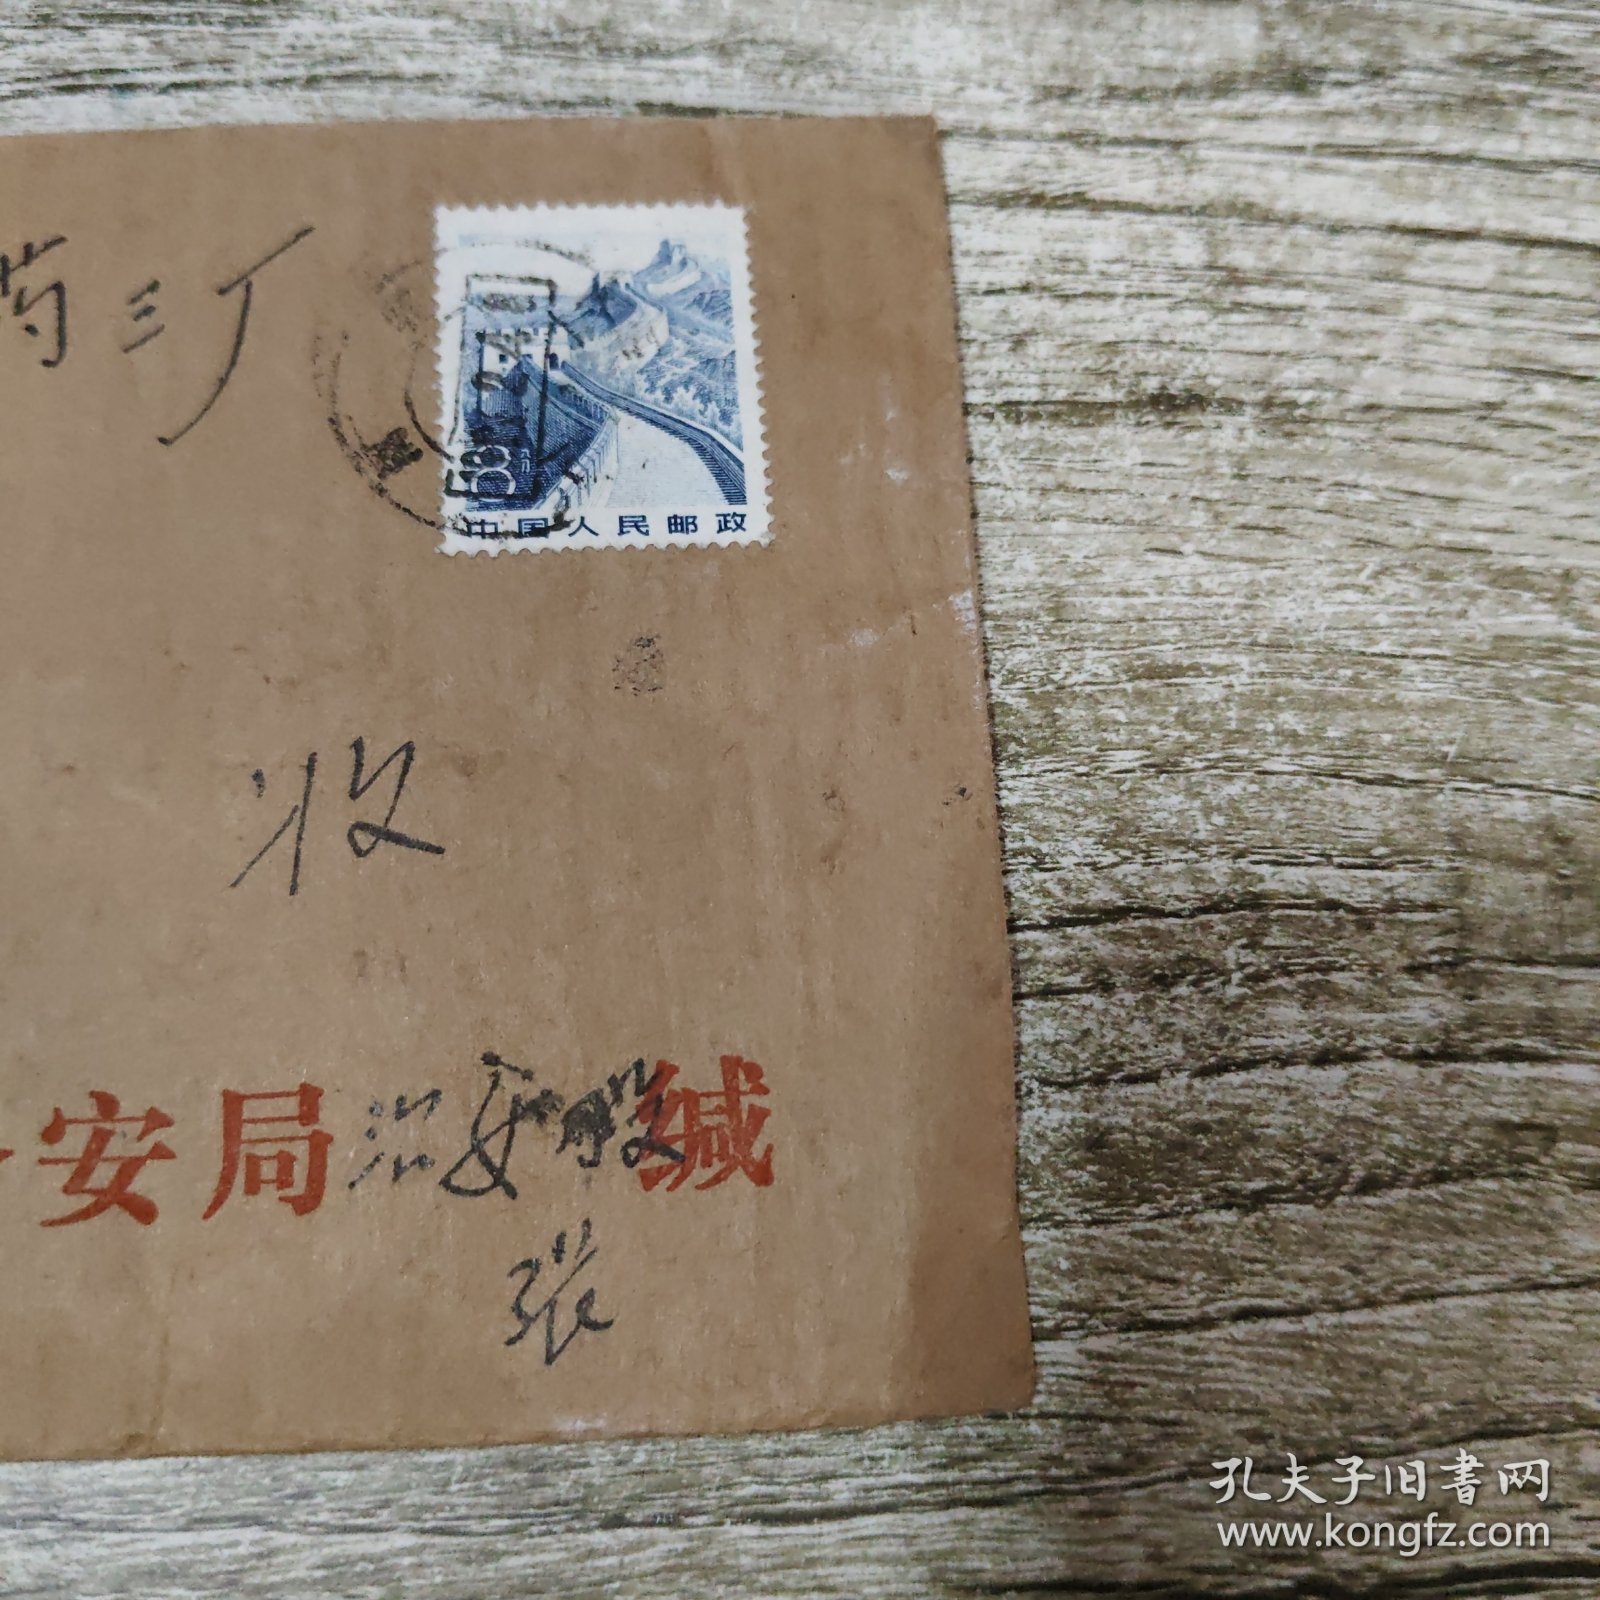 药三厂
8分
中国人民邮政
收
安局治安股缄
张
孔夫子旧书网
www.kongfz.com